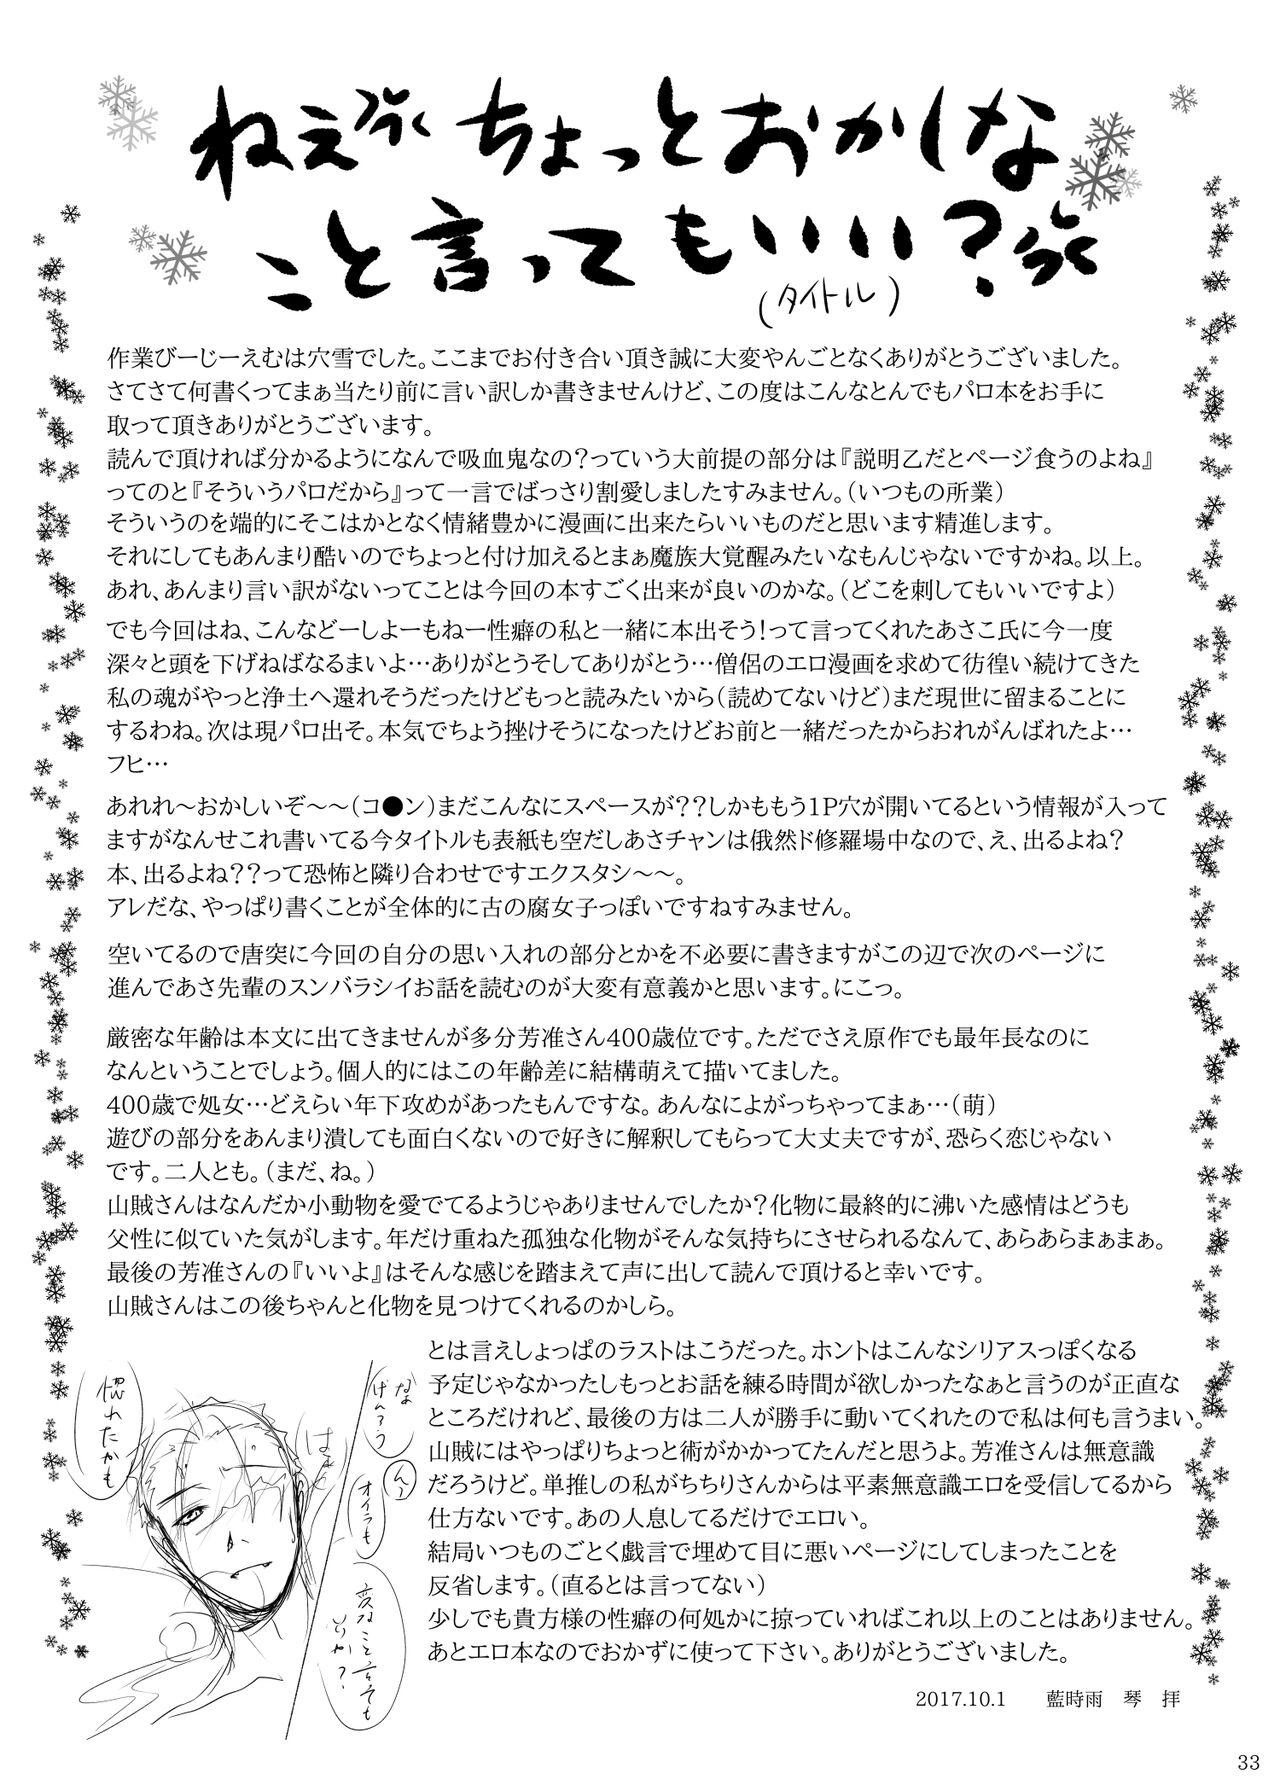 ねえ ちょっとおかしな
こと言ってもいい?
(タイトル)
作業びーじーえむは穴雪でした。ここまでお付き合い頂き誠に大変やんごとなくありがとうございました。
さてさて何書くってまぁ当たり前に言い訳しか書きませんけど、この度はこんなとんでもパロ本をお手に
取って頂きありがとうございます。
読んで頂ければ分かるようになんで吸血鬼なの?っていう大前提の部分は『説明乙だとページ食うのよね』
ってのと『そういうパロだから』って一言でばっさり割愛しましたすみません。(いつもの所業)
そういうのを端的にそこはかとなく情緒豊かに漫画に出来たらいいものだと思います精進します。
それにしてもあんまり酷いのでちょっと付け加えるとまぁ魔族大覚醒みたいなもんじゃないですかね。以上。
あれ、あんまり言い訳がないってことは今回の本すごく出来が良いのかな。(どこを刺してもいいですよ)
でも今回はね、こんなどーしよーもねー性癖の私と一緒に本出そう!って言ってくれたあさこ氏に今一度
深々と頭を下げねばなるまいよ…ありがとうそしてありがとう…僧侶のエロ漫画を求めて彷徨い続けてきた
私の魂がやっと浄土へ還れそうだったけどもっと読みたいから(読めてないけど)まだ現世に留まることに
するわね。次は現パロ出そ。本気でちょう挫けそうになったけどお前と一緒だったからおれがんばれたよ…
フヒ…
あれれ〜おかしいぞ〜〜(コ●ン)まだこんなにスペースが??しかももう1P穴が開いてるという情報が入って
ますがなんせこれ書いてる今タイトルも表紙も空だしあさチャンは俄然ド修羅場中なので、え、出るよね?
本、出るよね??って恐怖と隣り合わせですエクスタシ〜〜。
アレだな、やっぱり書くことが全体的に古の腐女子っぽいですねすみません。
空いてるので唐突に今回の自分の思い入れの部分とかを不必要に書きますがこの辺で次のページに
進んであさ先輩のスンバラシイお話を読むのが大変有意義かと思います。にこっ。
厳密な年齢は本文に出てきませんが多分芳准さん400歳位です。ただでさえ原作でも最年長なのに
なんということでしょう。個人的にはこの年齢差に結構萌えて描いてました。
400歳で処女…どえらい年下攻めがあったもんですな。あんなによがっちゃってまぁ…(萌)
遊びの部分をあんまり潰しても面白くないので好きに解釈してもらって大丈夫ですが、恐らく恋じゃない
です。二人とも。(まだ、ね。)
山賊さんはなんだか小動物を愛でてるようじゃありませんでしたか?化物に最終的に沸いた感情はどうも
父性に似ていた気がします。年だけ重ねた孤独な化物がそんな気持ちにさせられるなんて、あらあらまぁまぁ。
最後の芳准さんの『いいよ』はそんな感じを踏まえて声に出して読んで頂けると幸いです。
山賊さんはこの後ちゃんと化物を見つけてくれるのかしら。
とは言えしょっぱのラストはこうだった。ホントはこんなシリアスっぽくなる
予定じゃなかったしもっとお話を練る時間が欲しかったなぁと言うのが正直な
ところだけれど、最後の方は二人が勝手に動いてくれたので私は何も言うまい。
山賊にはやっぱりちょっと術がかかってたんだと思うよ。芳准さんは無意識
だろうけど。単推しの私がちちりさんからは平素無意識エロを受信してるから
仕方ないです。あの人息してるだけでエロい。
結局いつものごとく戯言で埋めて目に悪いページにしてしまったことを
反省します。(直るとは言ってない)
少しでも貴方様の性癖の何処かに掠っていればこれ以上のことはありません。
あとエロ本なのでおかずに使って下さい。ありがとうございました。
オイラも
変なこと言ても
いいか?
惚れたかも
2017.10.1 藍時雨 琴 拝
33